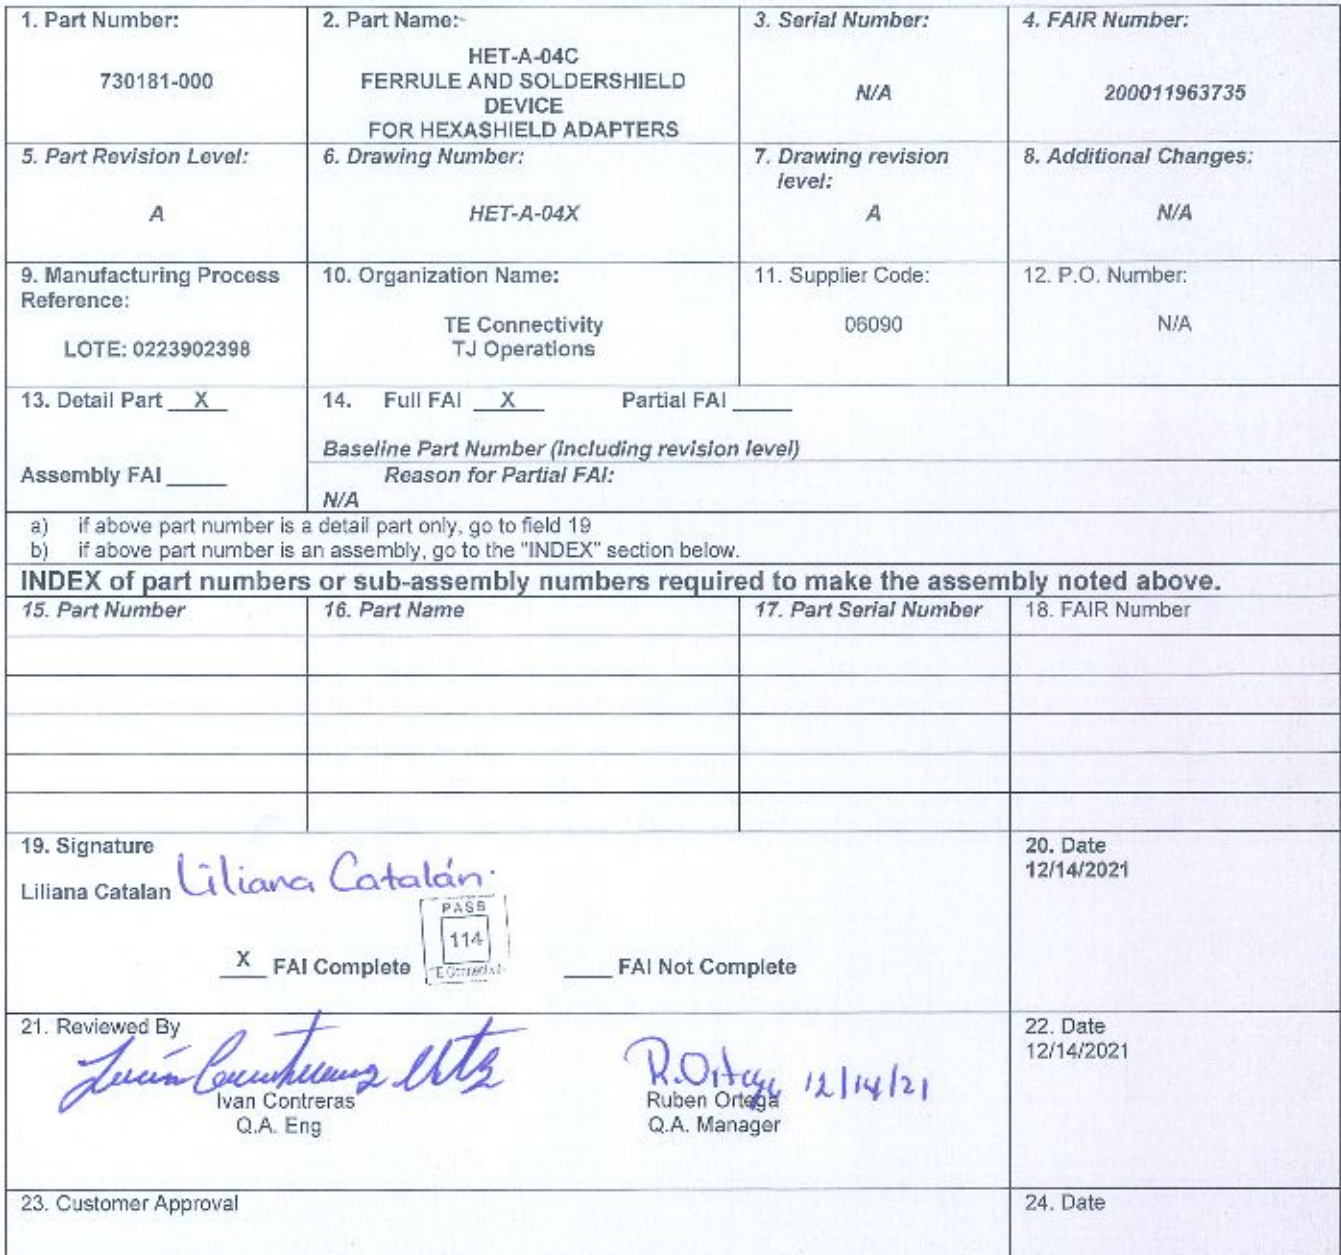 1. Part Number:
730181-000
2. Part Name:
HET-A-04C
FERRULE AND SOLDERSHIELD
DEVICE
FOR HEXASHIELD ADAPTERS
3. Serial Number:
N/A
4. FAIR Number:
200011963735
5. Part Revision Level:
A
6. Drawing Number:
HET-A-04X
7. Drawing revision
level:
A
8. Additional Changes:
N/A
9. Manufacturing Process
Reference:
LOTE: 0223902398
10. Organization Name:
TE Connectivity
TJ Operations
11. Supplier Code:
06090
12. P.O. Number:
N/A
13. Detail Part __X__
Assembly FAI _____
14. Full FAI __X__ Partial FAI _____
Baseline Part Number (including revision level)
Reason for Partial FAI:
N/A
a) if above part number is a detail part only, go to field 19
b) if above part number is an assembly, go to the "INDEX" section below.
INDEX of part numbers or sub-assembly numbers required to make the assembly noted above.
15. Part Number
16. Part Name
17. Part Serial Number
18. FAIR Number
19. Signature
Liliana Catalan Liliana Catalán.
PASS
114
TE Connectivity
X FAI Complete ____ FAI Not Complete
20. Date
12/14/2021
21. Reviewed By
Ivan Contreras
Q.A. Eng
R. Ortega 12/14/21
Ruben Ortega
Q.A. Manager
22. Date
12/14/2021
23. Customer Approval
24. Date